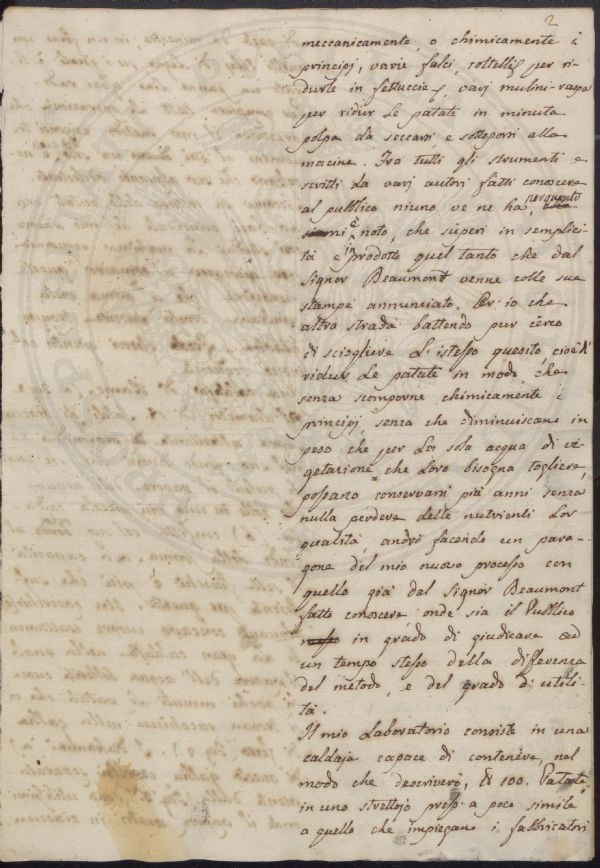 2
meccanicamente, o chimicamente i
principj, varie falci, coltelli per ri-
durle in fettuccie, varj mulini-raspa
per ridur le patate in minuta
polpa da seccarsi, e sottoporsi alla
macine. Fra tutti gli strumenti e
scritti da varj autori fatti conoscere
al pubblico niuno ve ne ha, perquanto
è noto, che superi in semplici-
tà e in prodotto quel tanto che dal
Signor Beaumont venne colle sue
stampe annunciato. Per io che
altra strada battendo pur cerco
di sciogliere l'istesso quesito, cioè di
ridur le patate in modo che
senza scomporne chimicamente i
principj, senza che diminuiscano in
peso che per la sola acqua di ve-
getazione che loro bisogna togliere,
possano conservarsi più anni senza
nulla perdere delle nutrienti lor
qualità, andrò facendo un para-
gone del mio nuovo processo con
quello già dal Signor Beaumont
fatto conoscere onde sia il Pubblico
in grado di giudicare ad
un tempo stesso della differenza
del metodo, e del grado di utili-
tà.
Il mio Laboratorio consiste in una
caldaja capace di contenere, nel
modo che descriverò, 100. Patate
in uno strettojo press a poco simile
a quello che impiegano i fabbricatori